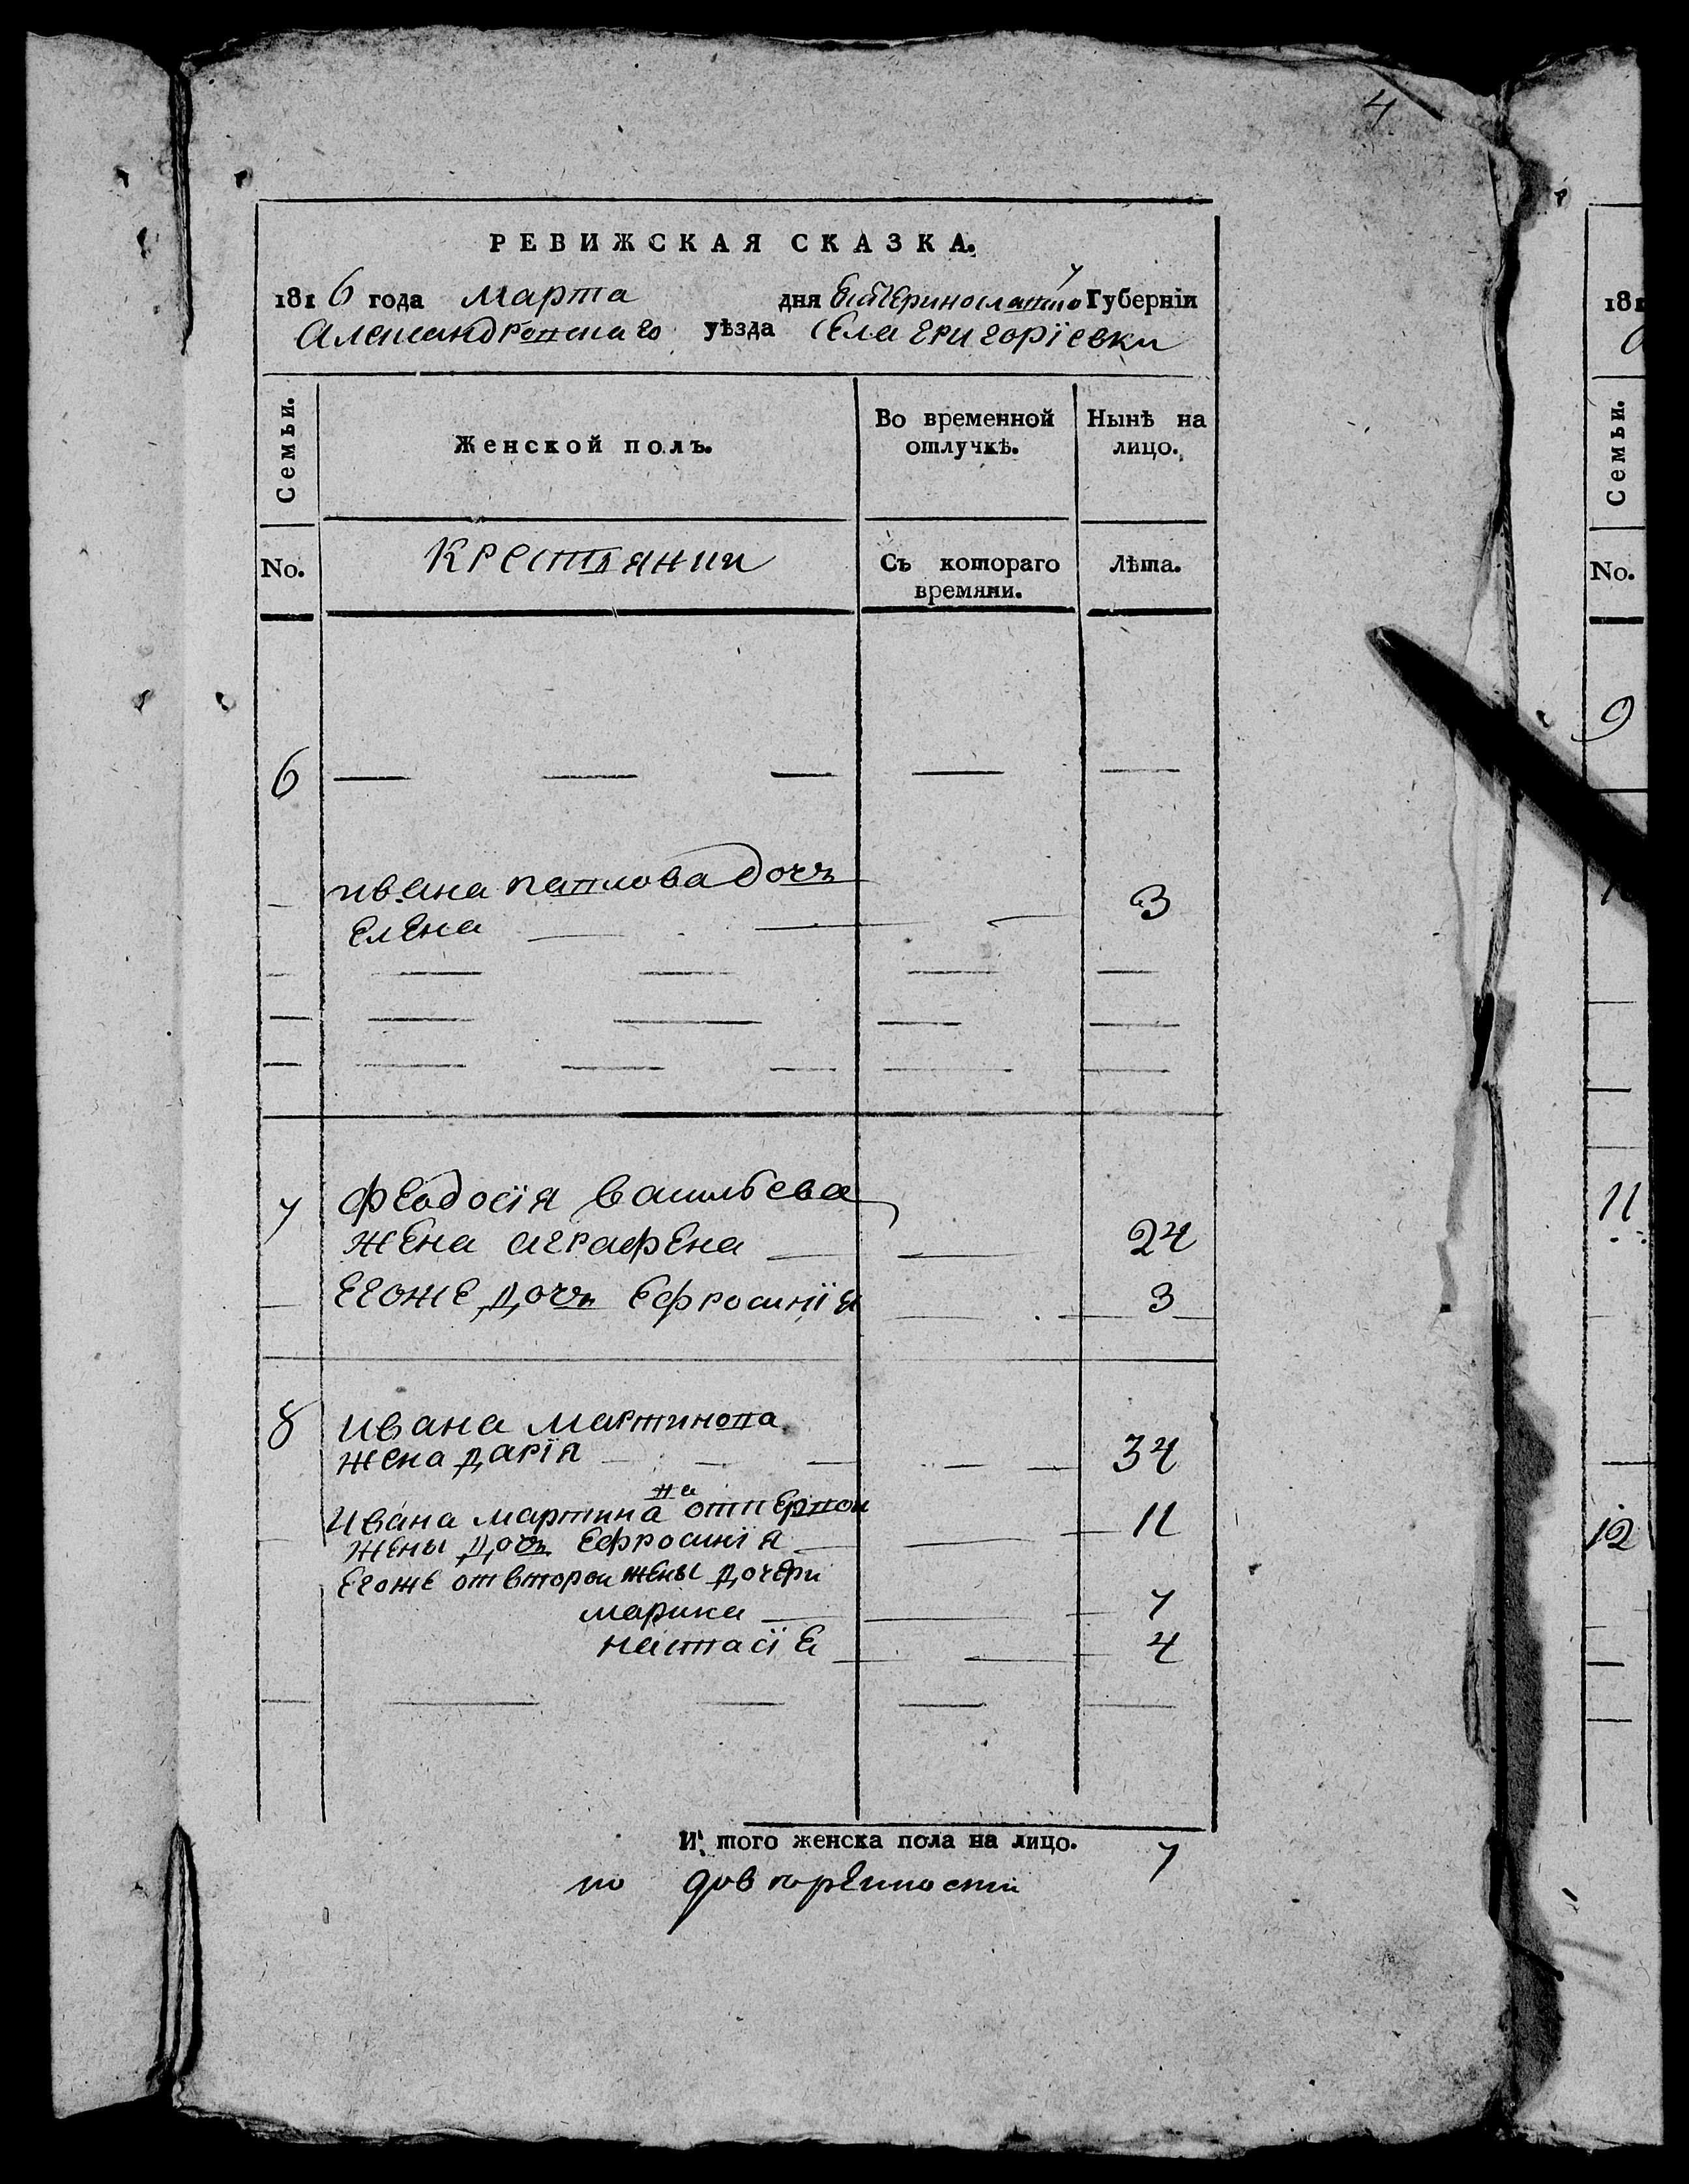 4
РЕВИЖСКАЯ СКАЗКА.
1816 года Марта дня Екатеринославско Губернїи
Александровскаго уѣзда Села григорїевки
Семьи. Женской полъ. Во временной отлучкѣ. Нынѣ на лицо.
No. Крестьянии Съ котораго времяни. Лѣта.
6
ивана павлова дочь 3
елена
7 феодосїя васильева
жена аграфена 24
егоже дочь ефросинїя 3
8 ивана мартинова
жена дарїя 34
ивана мартина ва от первои 11
жены дочь ефросинїя
егоже от второи жены дочери
марина 7
настасїя 4
И того женска пола на лицо. 7
по
181
Семьи.
No.
9
11
12